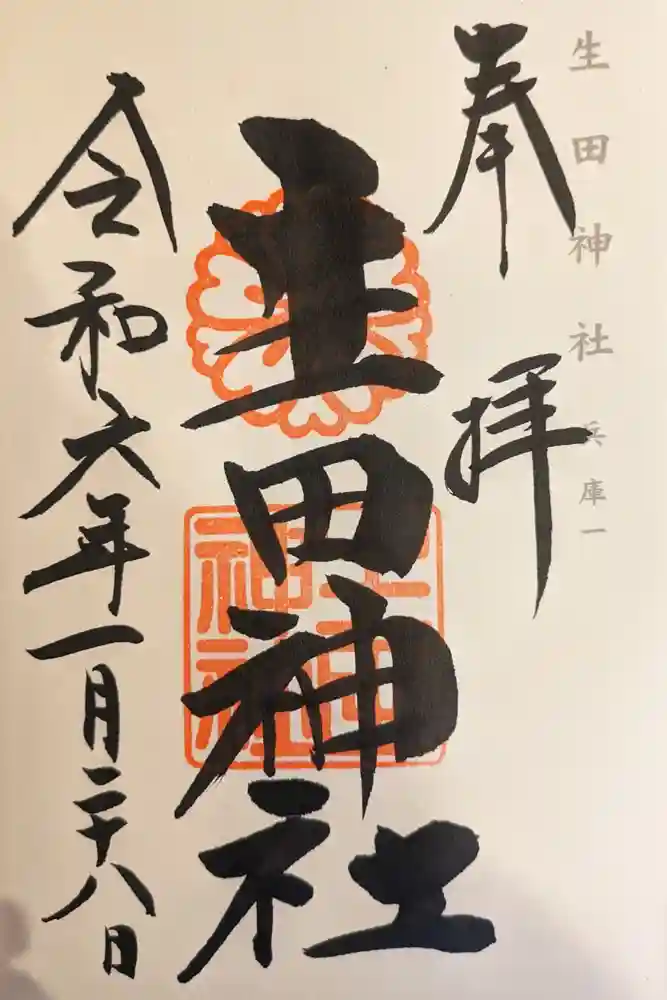 生田神社 兵庫一
奉拝
生田神社
令和六年一月二十八日